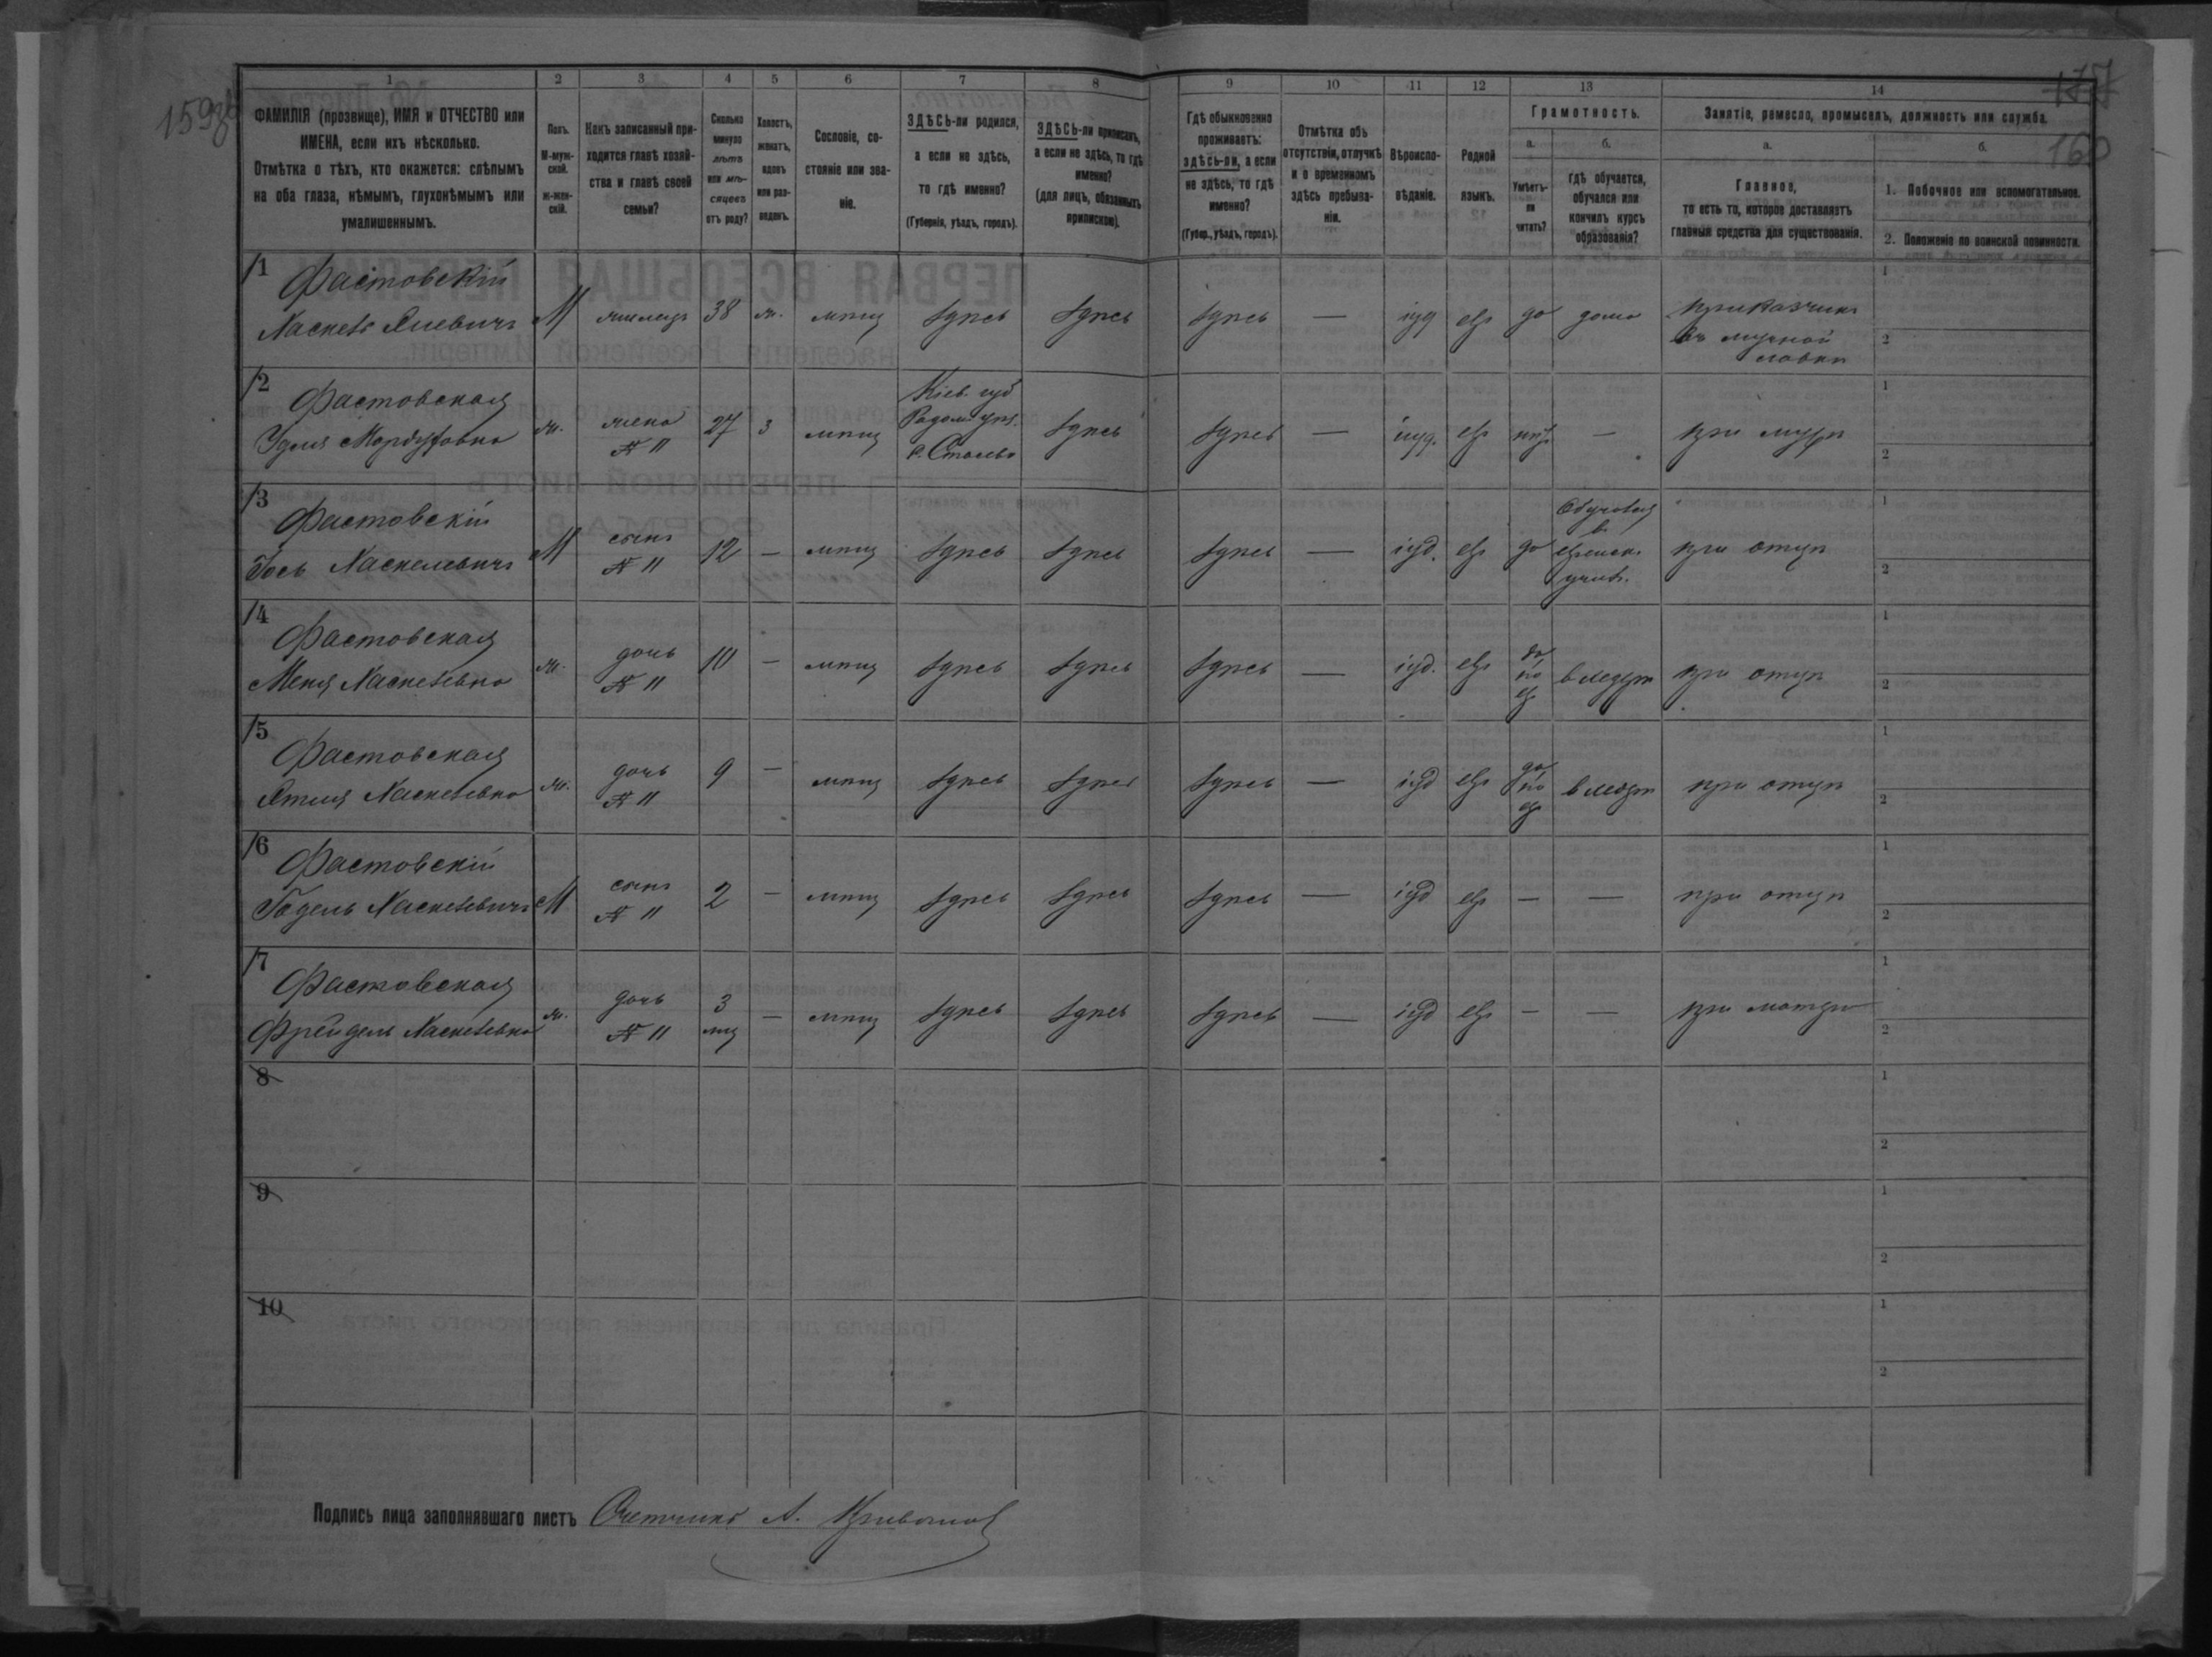 159об
177
160
1 2 3 4 5 6 7 8 9 10 11 12 13 14
ФАМИЛІЯ (прозвище), ИМЯ и ОТЧЕСТВО или
ИМЕНА, если ихъ нѣсколько.
Отмѣтка о тѣхъ, кто окажется: слѣпымъ
на оба глаза, нѣмымъ, глухонѣмымъ или
умалишеннымъ.
Полъ.
М-муж-
ской.
ж-жен-
скій.
Какъ записанный при-
ходится главѣ хозяй-
ства и главѣ своей
семьи?
Сколько
минуло
лѣтъ
или мѣ-
сяцевъ
отъ роду?
Холостъ,
женатъ,
вдовъ
или раз-
веденъ.
Сословіе, со-
стояніе или зва-
ніе.
ЗДѢСЬ-ли родился,
а если не здѣсь,
то гдѣ именно?
(Губернія, уѣздъ, городъ).
ЗДѢСЬ-ли приписанъ,
а если не здѣсь, то гдѣ
именно?
(для лицъ, обязанныхъ
припискою).
Гдѣ обыкновенно
проживаетъ:
здѣсь-ли, а если
не здѣсь, то гдѣ
именно?
(Губер., уѣздъ, городъ).
Отмѣтка объ
отсутствіи, отлучкѣ
и о временномъ
здѣсь пребыва-
ніи.
Вѣроиспо-
вѣданіе.
Родной
языкъ.
Грамотность.
а.
Умѣетъ-
ли
читать?
б.
гдѣ обучается,
обучался или
кончилъ курсъ
образованія?
Занятіе, ремесло, промыселъ, должность или служба.
а.
Главное,
то есть то, которое доставляетъ
главныя средства для существованія.
б.
1. Побочное или вспомогательное.
2. Положеніе по воинской повинности.
1
Фастовскій
Хаскель М 38 ж. мѣщ здѣсь здѣсь здѣсь — іуд евр да дома приказчикъ
въ мучной
лавкѣ
1
2
2
Фастовская
Мордуховна ж. жена 27 з мѣщ
Кіев. губ
Радом. уѣз.
здѣсь здѣсь — іуд. евр нѣтъ — при мужѣ
1
2
3
Фастовскій
Іось Хаскелевичъ М сынъ 12 — мѣщ здѣсь здѣсь здѣсь — іуд. евр да
въ
еврейск.
учил.
при отцѣ
1
2
4
Фастовская
Меня Хаскелевна ж. дочь 10 — мѣщ здѣсь здѣсь здѣсь — іуд. евр да
по
евр
при отцѣ
1
2
5
Фастовская
Хаскелевна ж. дочь 9 — мѣщ здѣсь здѣсь здѣсь — іуд евр да
по
евр
при отцѣ
1
2
6
Фастовскій
Годель Хаскелевичъ М сынъ 2 — мѣщ здѣсь здѣсь здѣсь — іуд евр — — при отцѣ
1
2
7
Фастовская
Фрейдель Хаскелевна ж. дочь 3
мѣс
— мѣщ здѣсь здѣсь здѣсь — іуд евр — — при матери
1
2
8
1
2
9
1
2
10
1
2
Подпись лица заполнявшаго листъ Счетчикъ А.